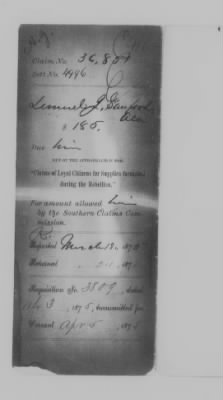 Claim No. 36,801
Sett. No. 4996
Lemuel J.
Ala
$ 185.
Due him
OUT OF THE APPROPRIATION FOR
"Claims of Loyal Citizens for Supplies furnished
during the Rebellion."
For amount allowed him
by the Southern Claims Com-
mission.
Reported March 18, 187
Returned " 21, 187
Requisition No. 3809, dated
3, 1875, transmitted for
Warrant Apr 5, 1875